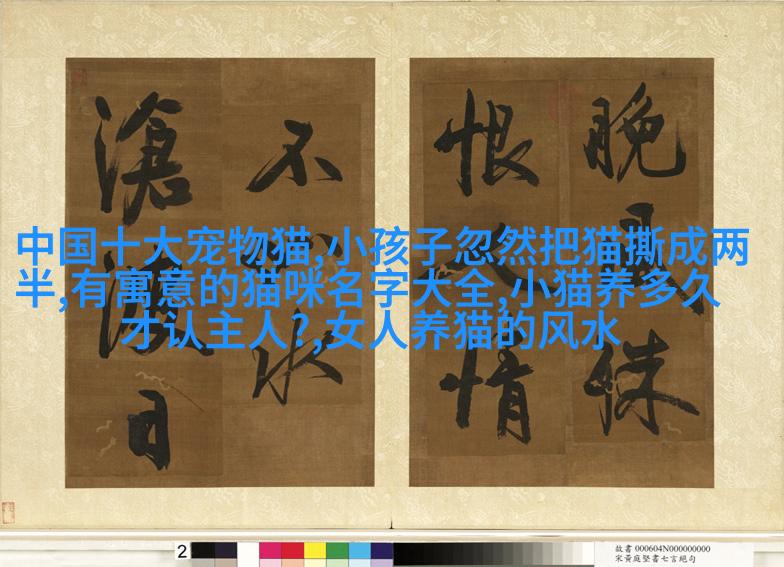 晚
恨人情
不水
滄波日
中国十大宠物猫,小孩子忽然把猫撕成两
半,有寓意的猫咪名字大全,小猫养多久
才认主人?,女人养猫的风水
2
故書 000604N000000000
宋黃庭堅書七言絕句